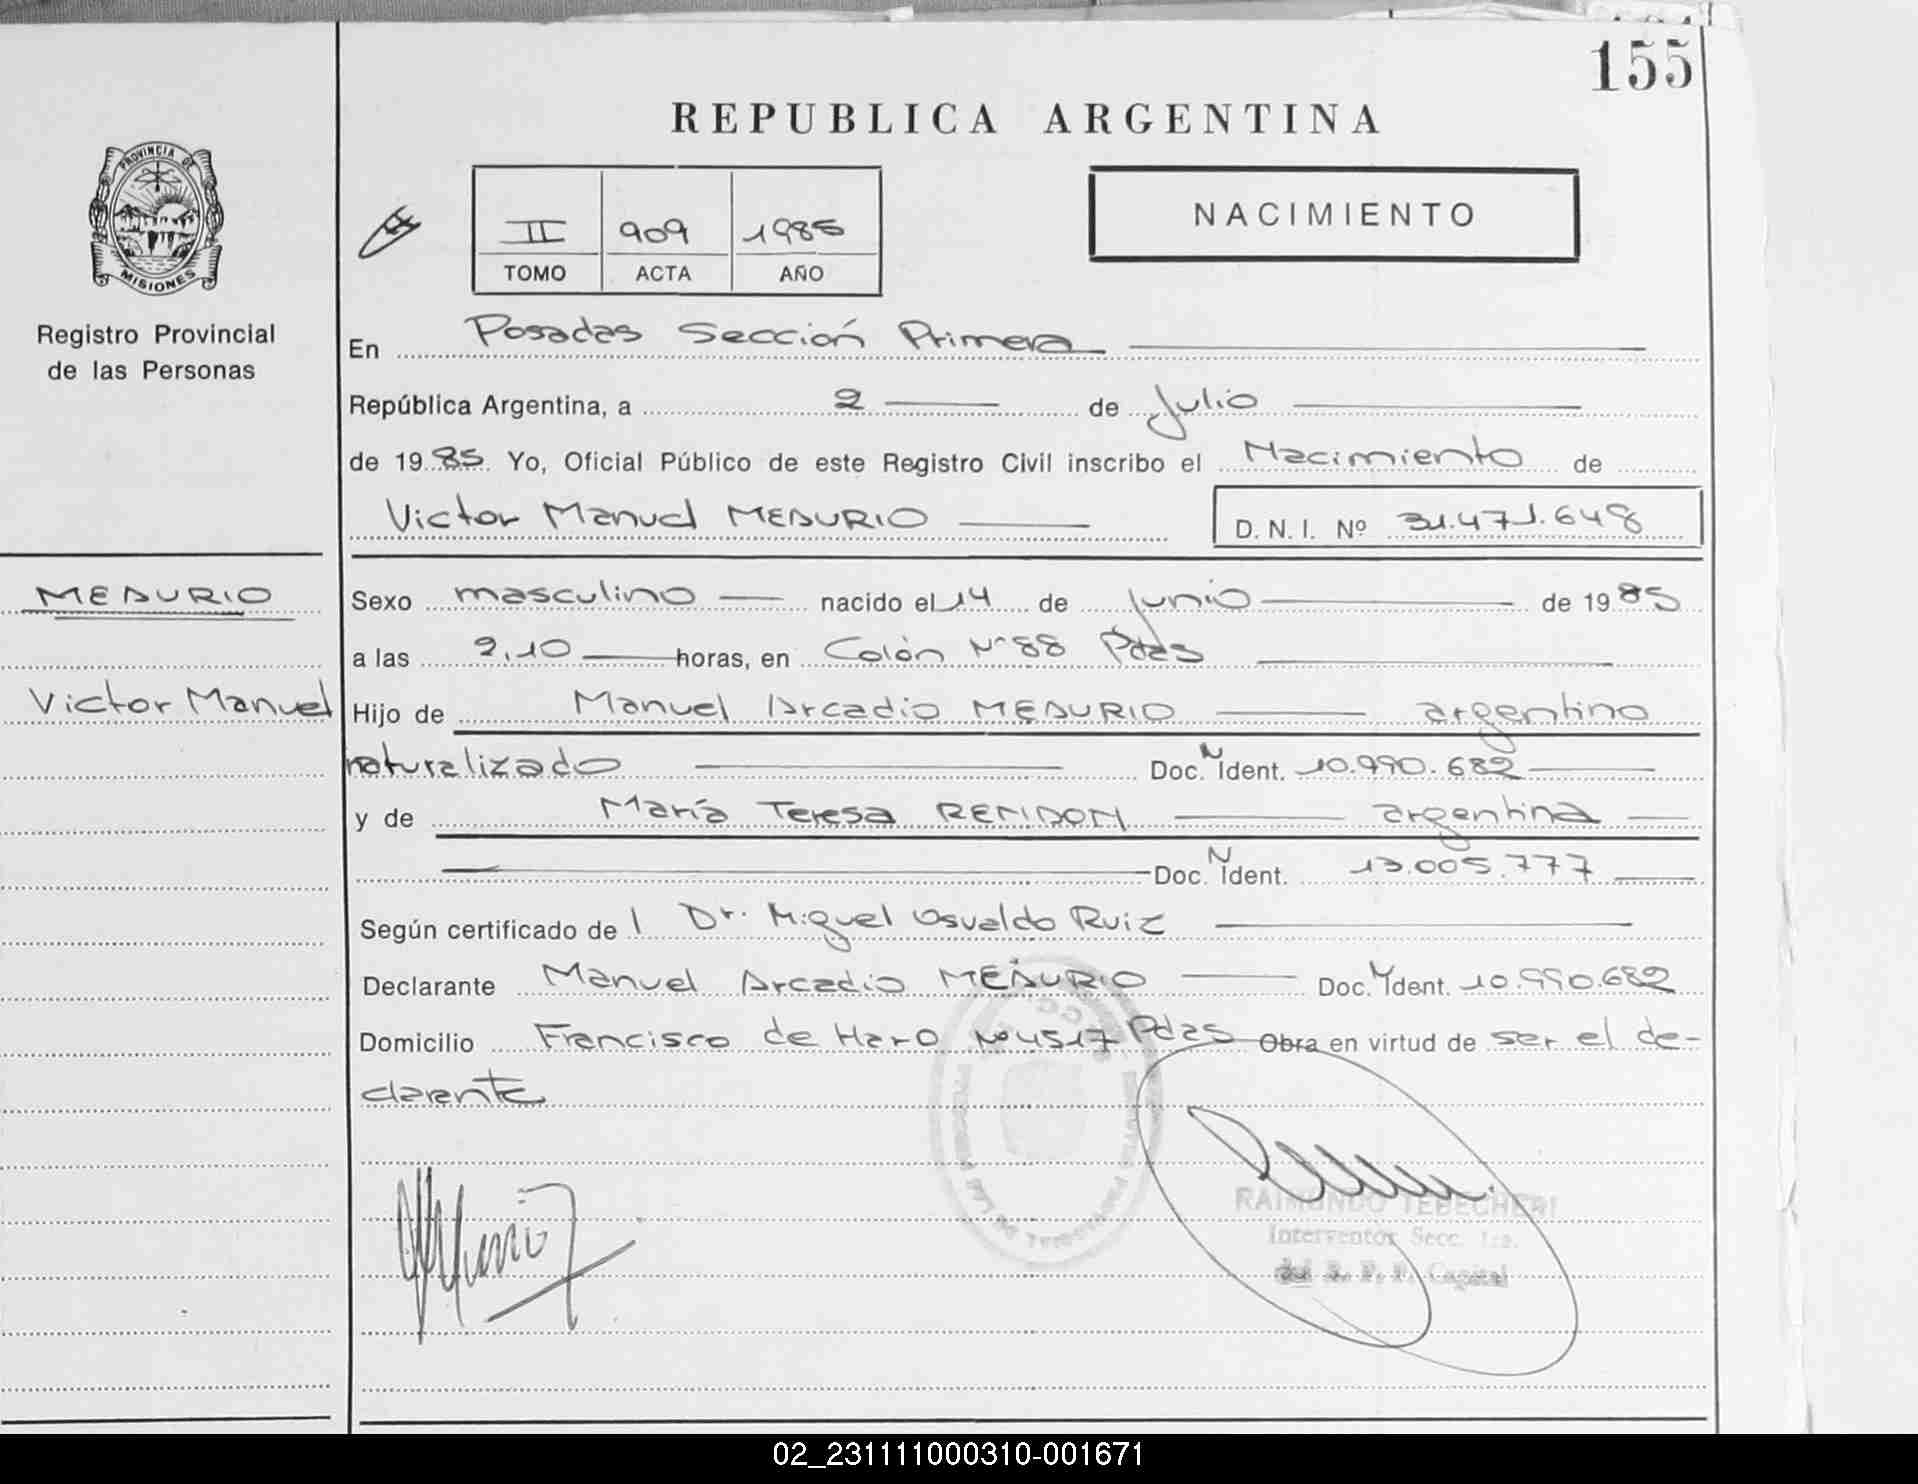 155
REPUBLICA ARGENTINA
PROVINCIA DE
MISIONES
Registro Provincial
de las Personas
II 909 1985
TOMO ACTA AÑO
NACIMIENTO
En Posadas Sección Primera
República Argentina, a 2 de Julio
de 1985 Yo, Oficial Público de este Registro Civil inscribo el Nacimiento de
Victor Manuel MEDURIO D.N.I. Nº 31.471.648
MEDURIO
Sexo masculino nacido el 14 de junio de 1985
a las 2,10 horas, en Colón Nº 88 Pdas
Victor Manuel
Hijo de Manuel Arcadio MEDURIO argentino
naturalizado Doc. N Ident. 10.990.682
y de María Teresa RENDON argentina
Doc. N Ident. 13.005.777
Según certificado de l Dr. Miguel Osvaldo Ruiz
Declarante Manuel Arcadio MEDURIO Doc. N Ident. 10.990.682
Domicilio Francisco de Haro Nº 4517 Pdas Obra en virtud de ser el de-
clarante
RAIMUNDO TEBECHERI
Interventor Secc. 1ra.
del R. P. P. Capital
02_231111000310-001671